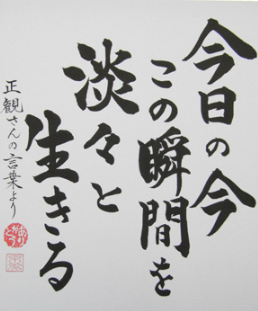 今日の今
この瞬間を
淡々と
生きる
正観さんの言葉より